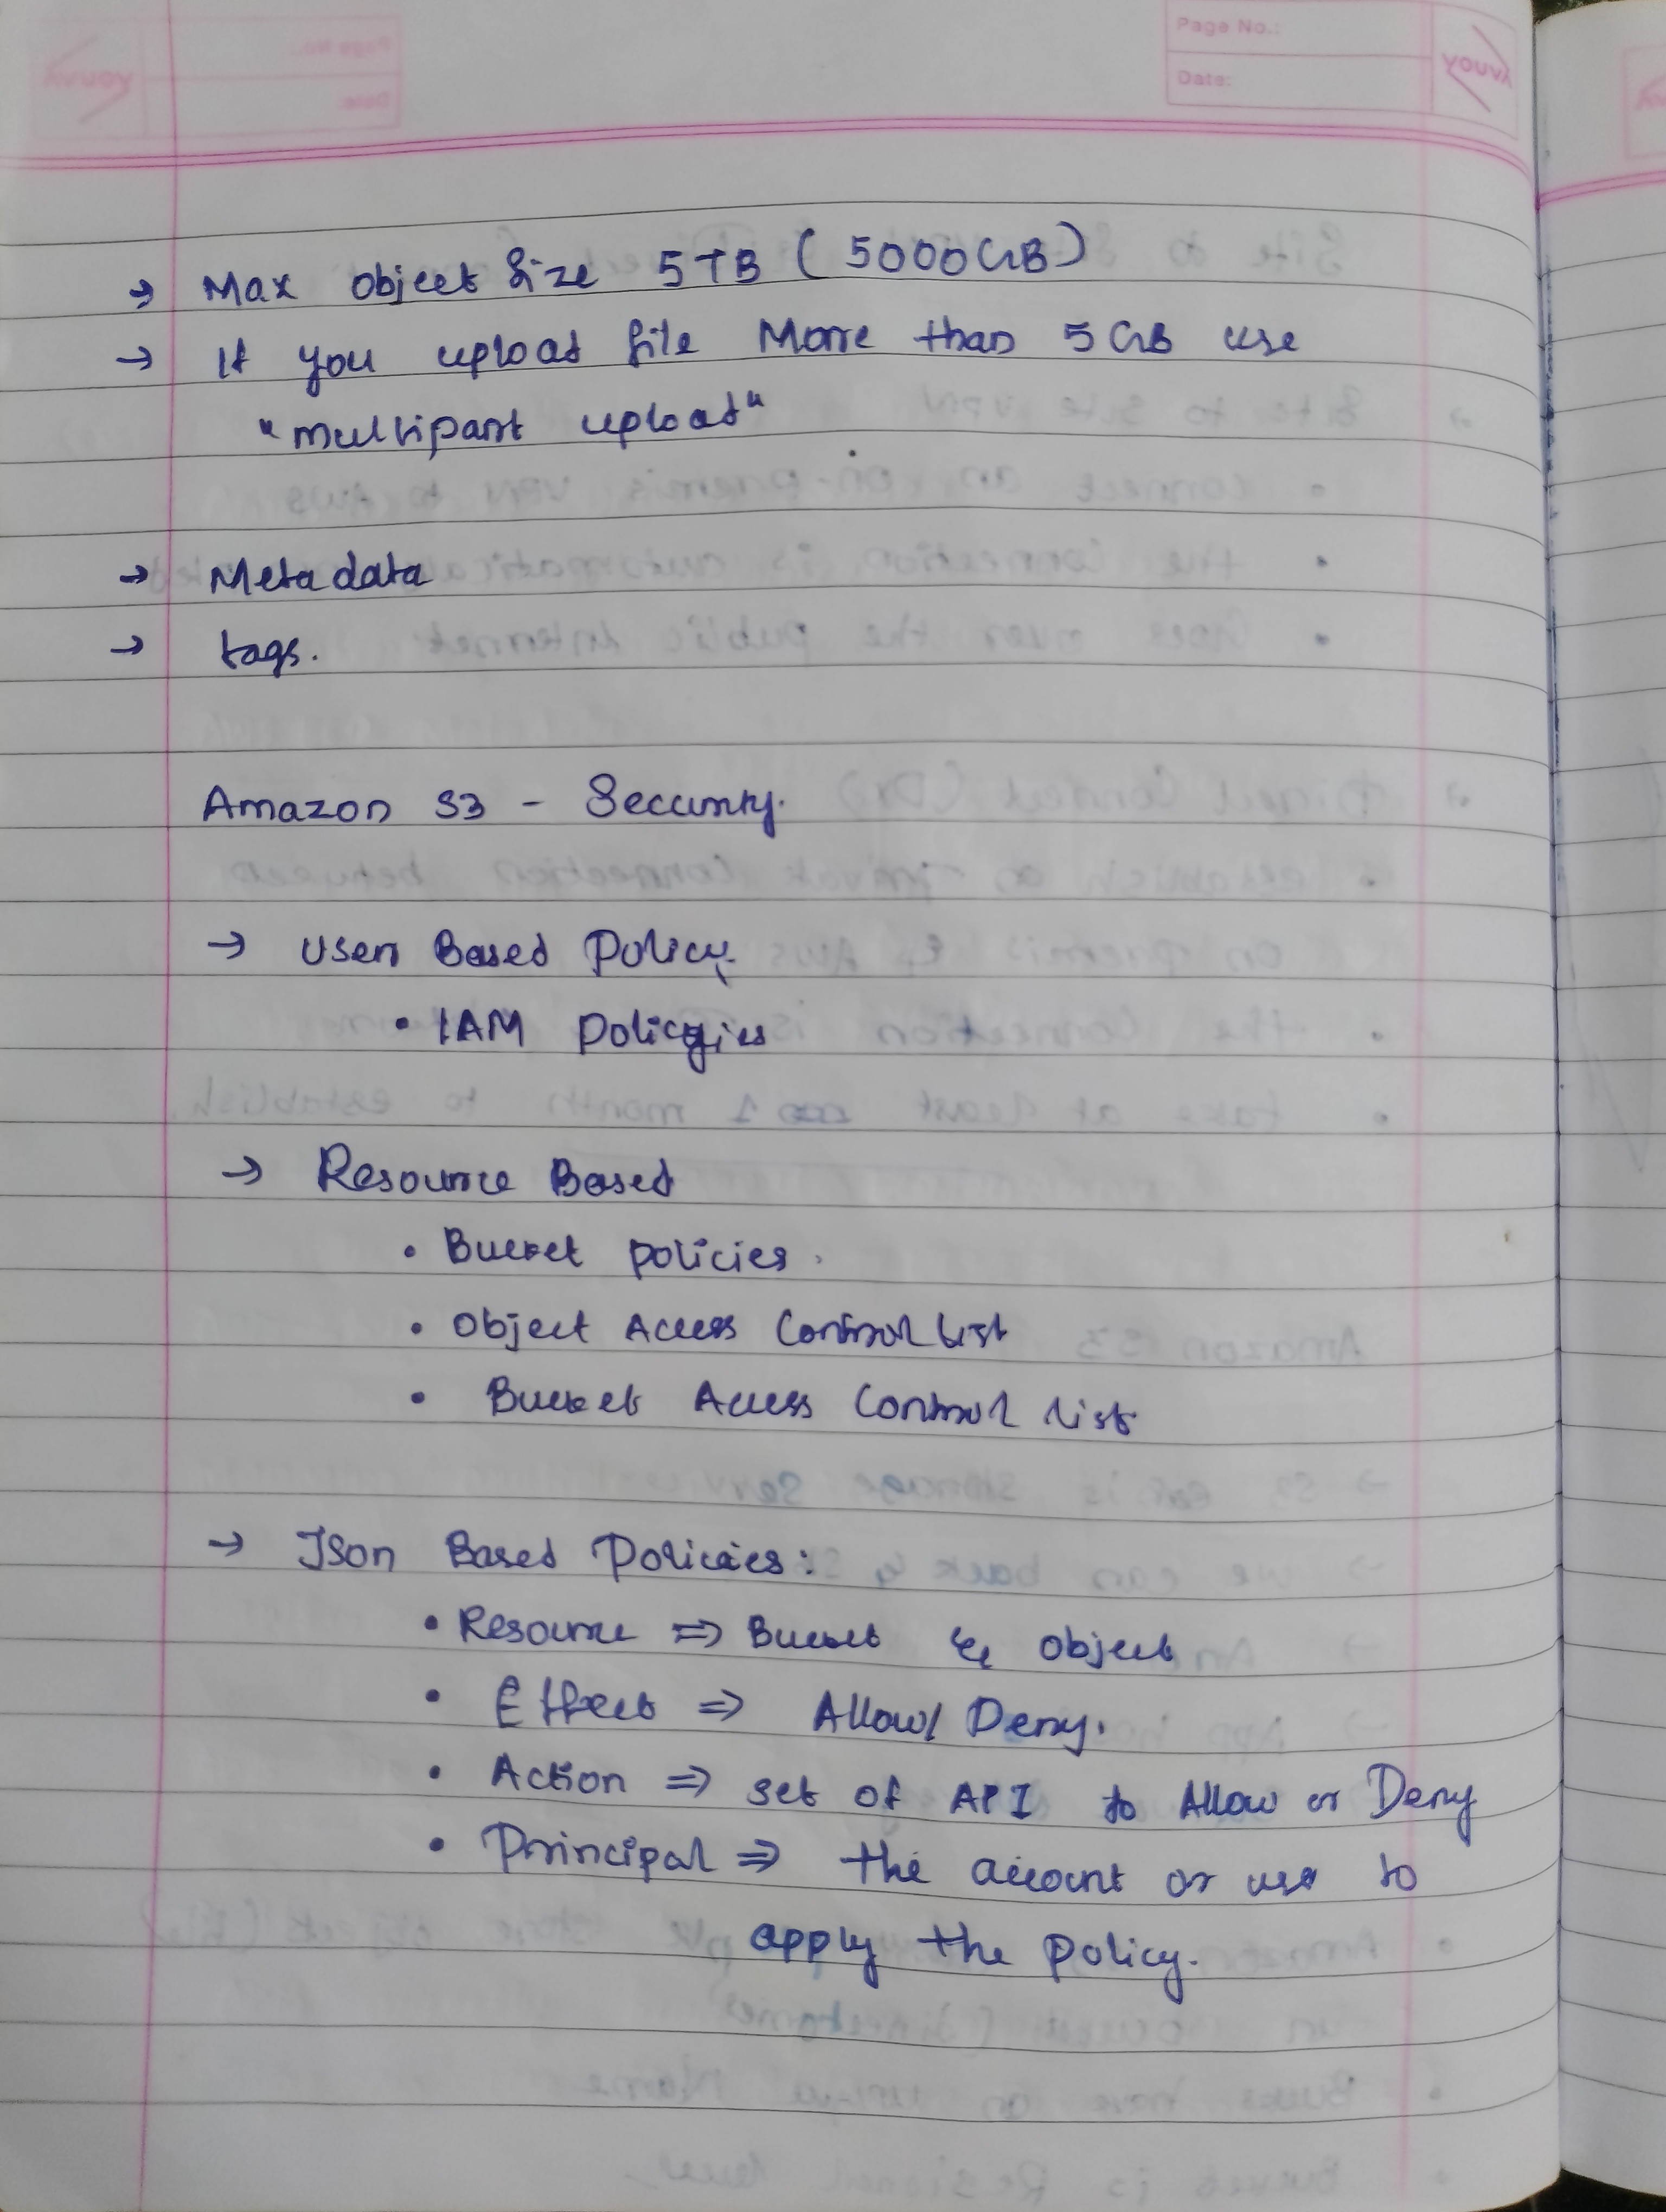 Page No.:
Date:
YOUVA
→ Max object size 5TB (5000GB)
→ If you upload file More than 5GB use
"multipart upload"
→ Metadata
→ tags.
Amazon S3 - Security.
→ User Based Policy.
• IAM Policyies
→ Resource Based
• Bucket policies.
• Object Access Control list
• Bucket Access Control list
→ Json Based Policies:
• Resource ⇒ Bucket & object
• Effect ⇒ Allow/ Deny.
• Action ⇒ set of API to Allow or Deny
• Principal ⇒ the account or user to
apply the policy.